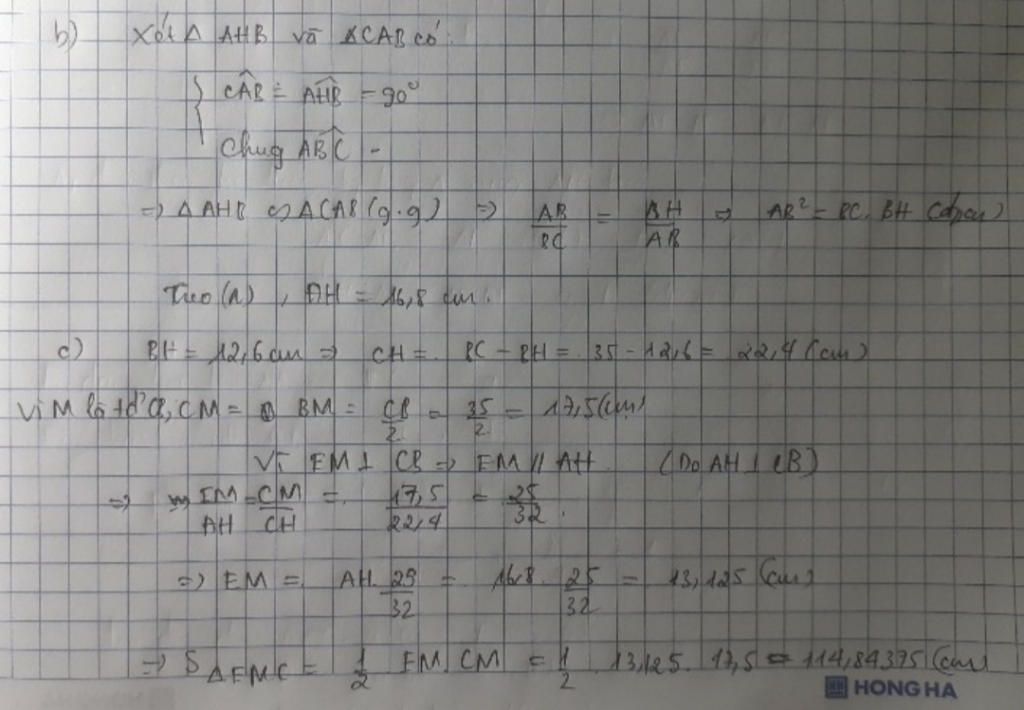 b) Xét Δ AHB và ΔCAB có:
CÂB = AĤB = 90°
Chung AB̂C
=> Δ AHB ∽ ΔCAB (g.g) => AB/BC = BH/AB => AB² = BC. BH (đpcm)
Theo (a), AH = 16,8 cm.
c) BH = 12,6 cm => CH = BC - BH = 35 - 12,6 = 22,4 (cm)
Vì M là tđ CB, CM = BM = CB/2 = 35/2 = 17,5 (cm)
Vì EM ⊥ CB => EM // AH (Do AH ⊥ CB)
=> EM/AH = CM/CH = 17,5/22,4 = 25/32.
=> EM = AH. 25/32 = 16,8. 25/32 = 13,125 (cm)
=> S ΔEMC = 1/2 EM. CM = 1/2 13,125. 17,5 = 114,84375 (cm)
HONG HA